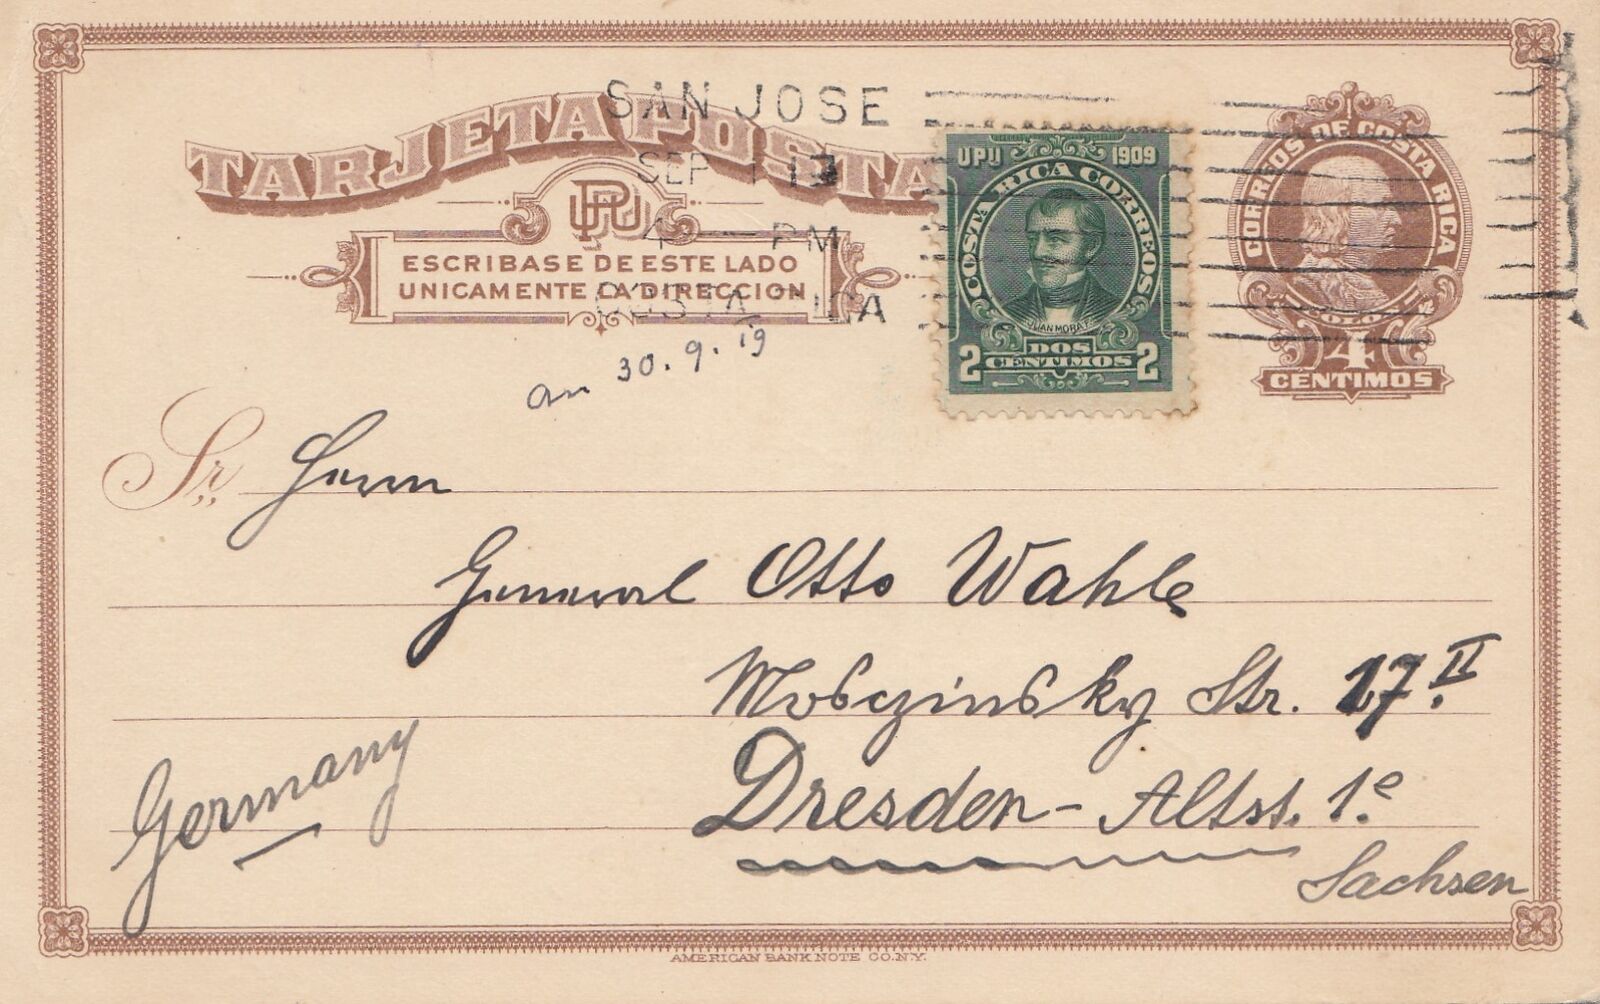 TARJETA POSTA
UPU
ESCRIBASE DE ESTE LADO
UNICAMENTE LA DIRECCION
SAN JOSE
SEP
4 — PM
COSTA RICA
UPU 1909
COSTA RICA CORREOS
JUAN MORA F.
2 DOS CENTIMOS 2
CORREOS DE COSTA RICA
4
CENTIMOS
an 30.9.19
Sr. Herrn
General Otto Wahle
Mosczinsky Str. 17.II
Dresden-Altst. 1.
Sachsen
Germany
AMERICAN BANK NOTE CO. N.Y.